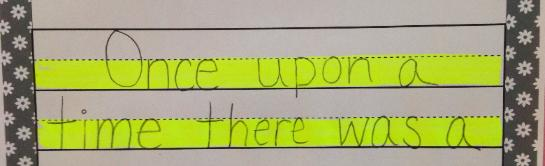 Once upon a
time there was a